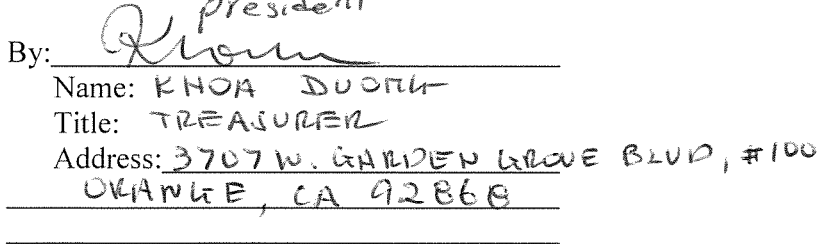 president
By: Khoa
Name: KHOA DUONG
Title: TREASURER
Address: 3707 W. GARDEN GROVE BLVD, #100
ORANGE, CA 92868